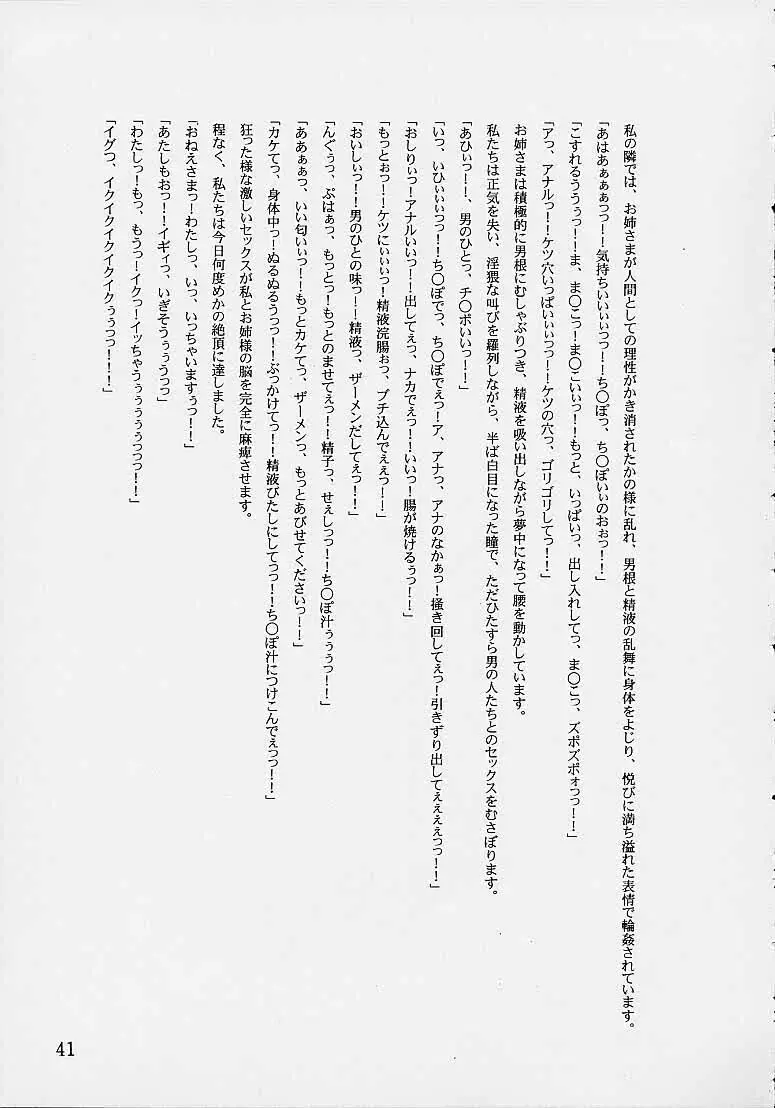 私の隣では、お姉さまが人間としての理性がかき消されたかの様に乱れ、男根と精液の乱舞に身体をよじり、悦びに満ち溢れた表情で輪姦されています。
「あはあぁぁぁっっ！！気持ちいいぃぃっっ！！ち〇ぽっ、ち〇ぽいぃのおぉっ！！」
「こすれるううぅっ！！ま、ま〇こっ！ま〇こいぃっ！！もっと、いっぱいっ、出し入れしてっ、ま〇こっ、ズポズポォっっ！！」
「アっ、アナルっ！！ケツ穴いっぱいぃぃっっ！！ケツの穴っ、ゴリゴリしてっ！！」
お姉さまは積極的に男根にむしゃぶりつき、精液を吸い出しながら夢中になって腰を動かしています。
私たちは正気を失い、淫猥な叫びを羅列しながら、半ば白目になった瞳で、ただひたすら男の人たちとのセックスをむさぼります。
「あひぃっ！！、男のひとっ、チ〇ポいいっ！！」
「いっ、いひぃぃぃっっ！！ち〇ぽでっ、ち〇ぽでぇっ！ア、アナっ、アナのなかぁっ！掻き回してぇっ！引きずり出してえぇぇぇっっ！！」
「おしりぃっ！アナルいいっ！！出してぇっ、ナカでぇっ！！いいっ！腸が焼けるぅっ！！」
「もっとぉっ！！ケツにいぃぃっ！精液浣腸ぉっ、ブチ込んでぇぇっ！！」
「おいしいぃっ！！男のひとの味っ！！精液っ、ザーメンだしてぇっ！！」
「んぐぅっ、ぷはぁっ、もっとっ！もっとのませてえぇっ！！精子っ、せぇしっっ！！ち〇ぽ汁ぅぅぅっ！！」
「ああぁぁっ、いい匂いぃっ！！もっとカケてっ、ザーメンっ、もっとあびせてくださいっ！！」
「カケてっ、身体中っ！ぬるぬるうっっ！！ぶっかけてっ！！精液びたしにしてっっ！！ち〇ぽ汁につけこんでぇっっ！！」
狂った様な激しいセックスが私とお姉様の脳を完全に麻痺させます。
程なく、私たちは今日何度めかの絶頂に達しました。
「おねえさまっ！わたしっ、いっ、いっちゃいますぅっ！！」
「あたしもおっ！！イギィっ、いぎそうぅぅうっっ」
「わたしっ！もっ、もうっ！イクっ！イッちゃうぅぅぅぅぅっっっ！！」
「イグつ、イクイクイクイクイクぅぅうっっ！！！」
41